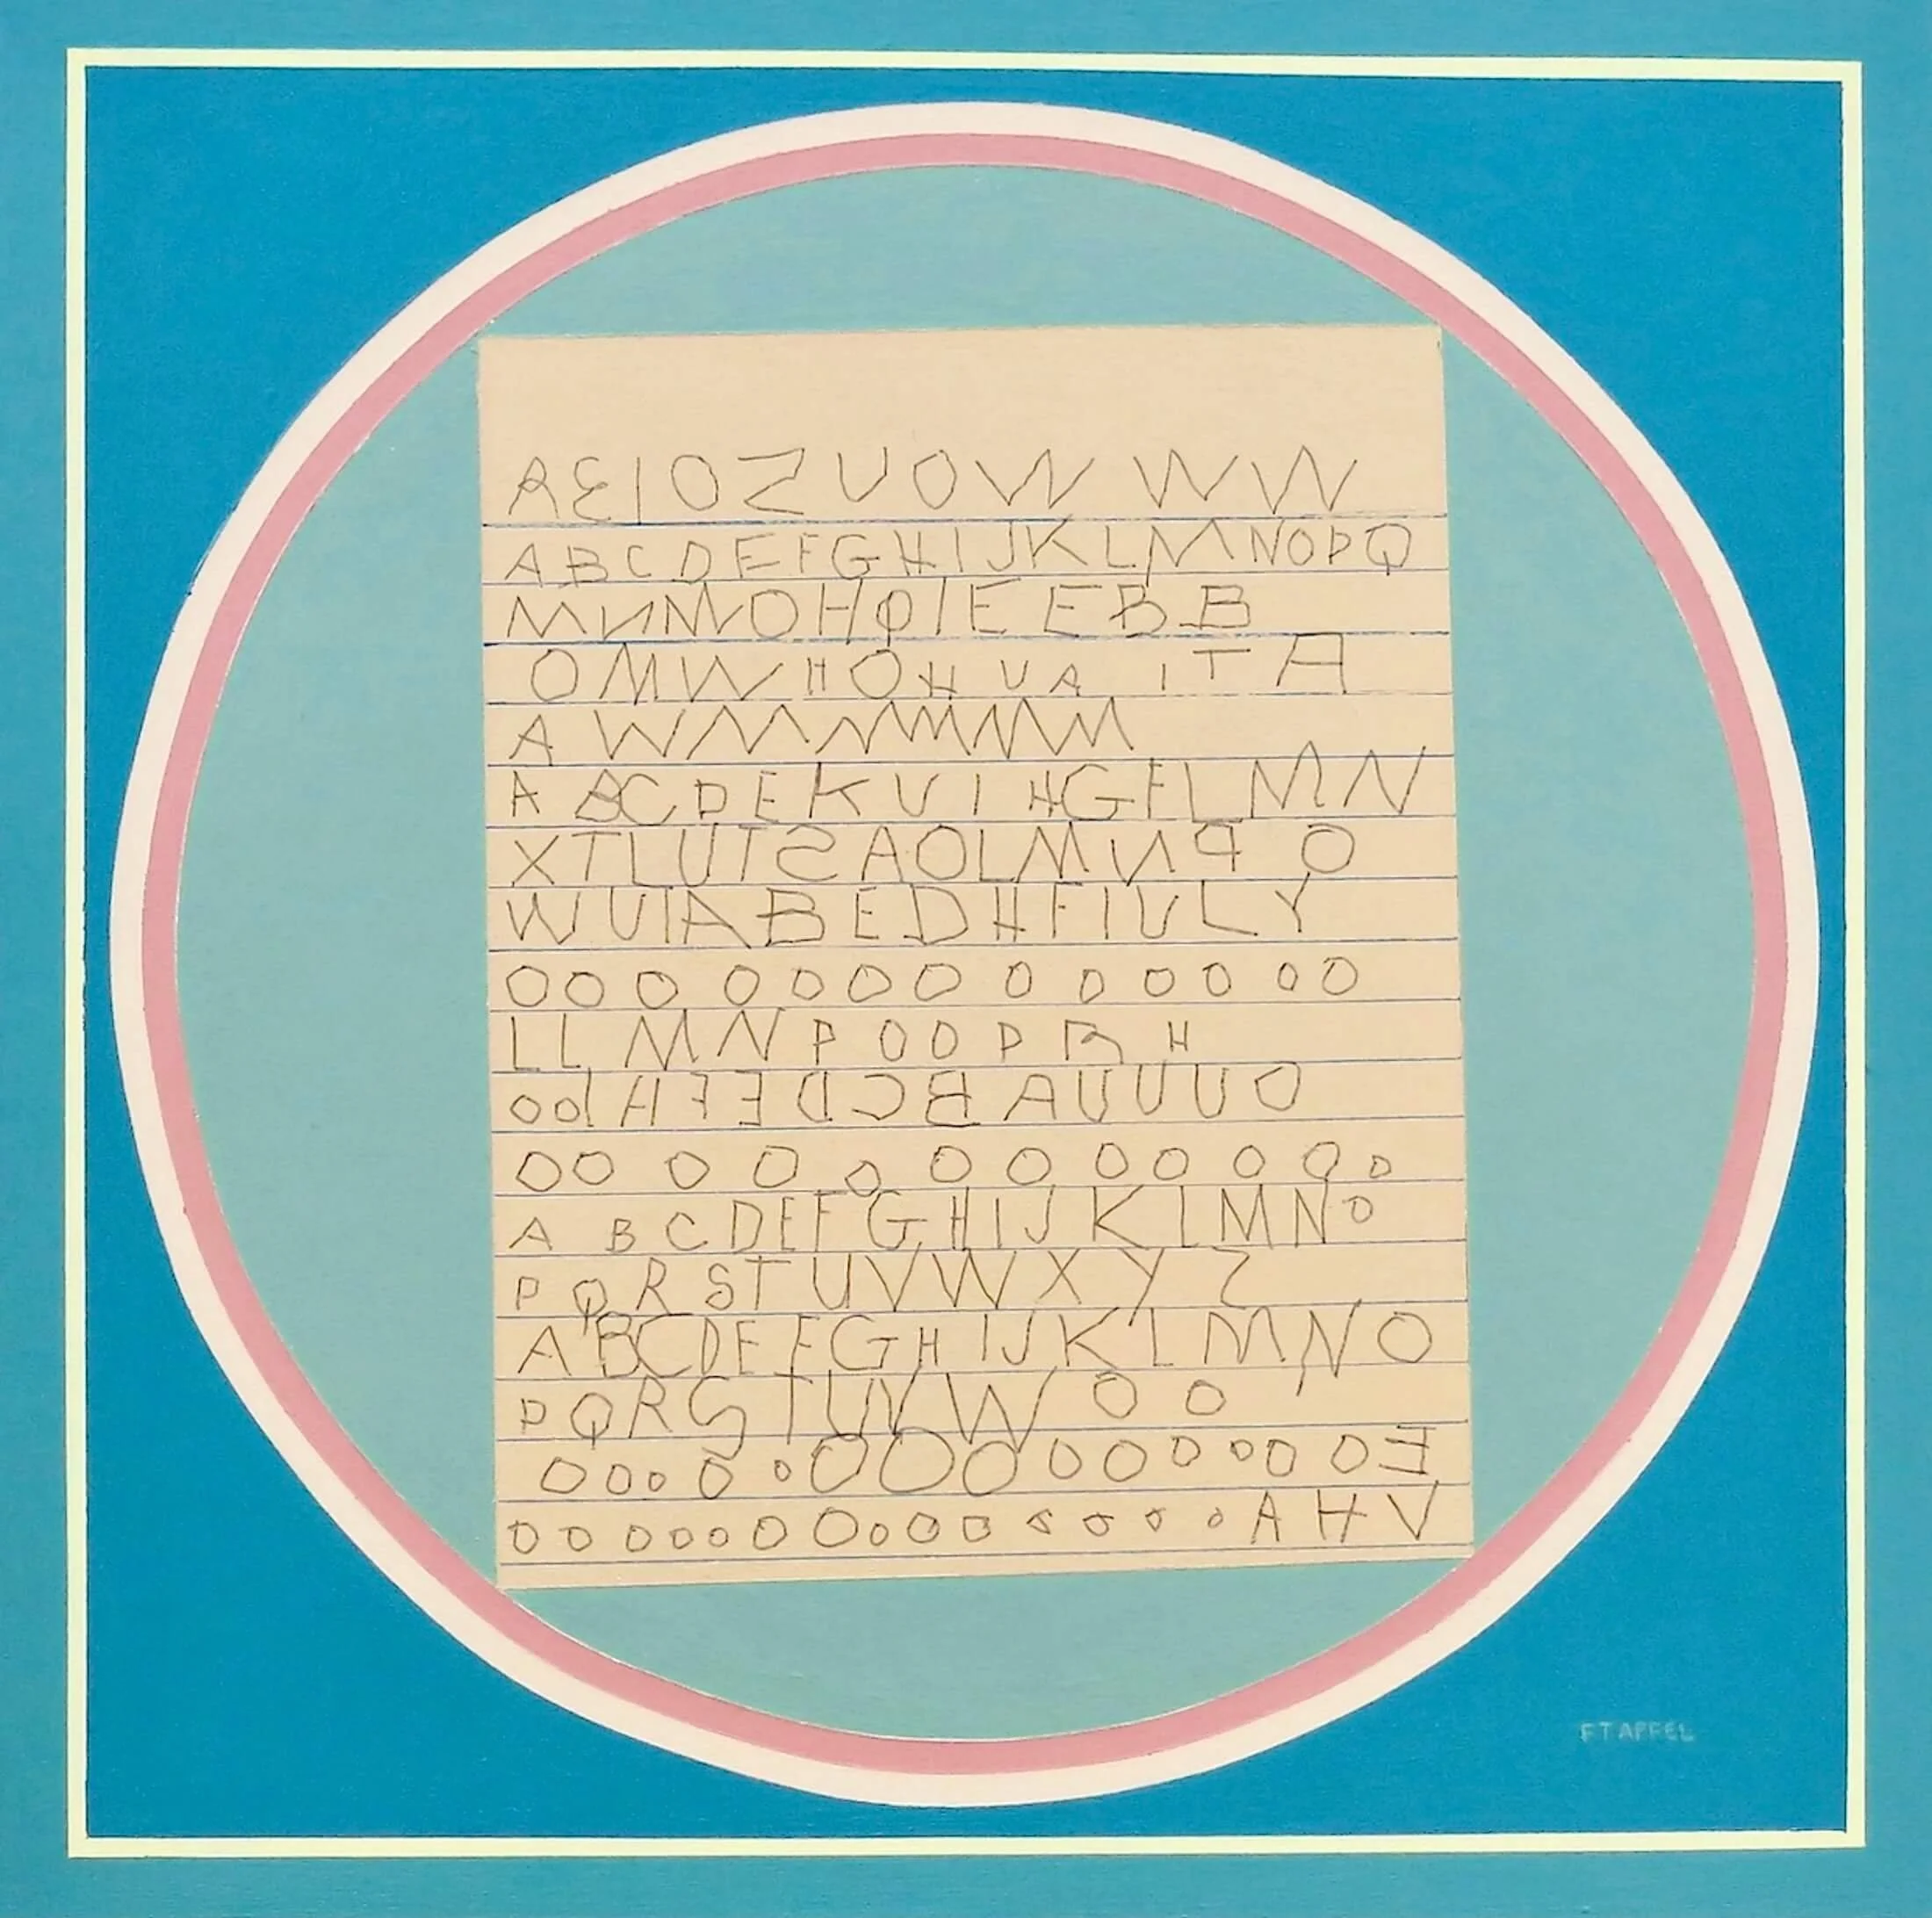 A Ɛ I O Z U O W W W
A B C D E F G H I J K L M N O P Q
M И N W O H Φ I E E B B
O M W H O H U A I T A
A W M N M M N M
A B C D E K U I H G F L M N
X T L U T S A O L M И ꟼ O
W U T A B E D H F I U L Y
O O O O O O O O O O O O O
L L M N P O O P R H
O O I H ꟻ Ǝ D Ɔ B A U U U O
O O O O O O O O O O O O
A B C D E F G H I J K L M N O
P Q R S T U V W X Y Z
A B C D E F G H I J K L M N O
P Q R S T U V W O O
O O O O O O O O O O O O O O Ǝ
O O O O O O O O O O O O O O A H V
F T APFEL